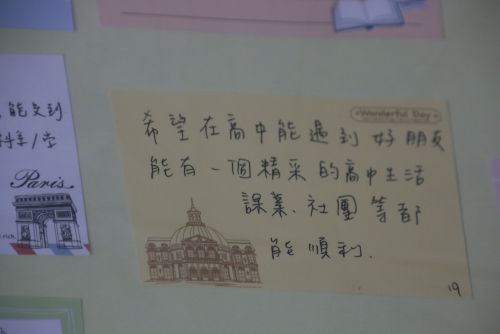 Wonderful Day
希望在高中能遇到好朋友
能有一個精采的高中生活
課業、社團等都
能順利.
19
能交到
Paris